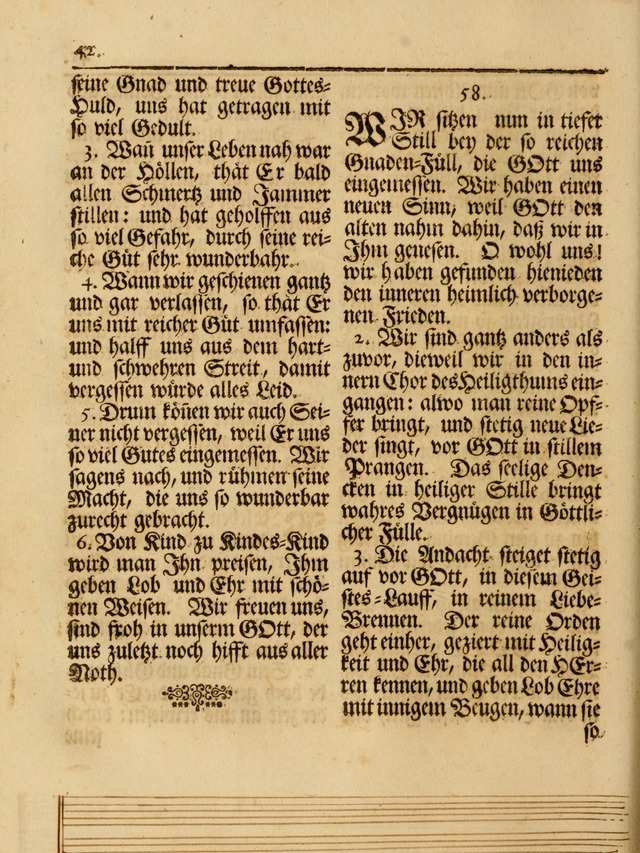 42.
seine Gnad und treue Gottes-
Huld, uns hat getragen mit
so viel Gedult.
3. Wañ unser Leben nah war
an der Höllen, thät Er bald
allen Schmertz und Jammer
stillen: und hat geholffen aus
so viel Gefahr, durch seine rei-
che Güt sehr wunderbahr.
4. Wann wir geschienen gantz
und gar verlassen, so thät Er
uns mit reicher Güt umfassen:
und halff uns aus dem hart-
und schwehren Streit, damit
vergessen würde alles Leid.
5. Drum köñen wir auch Sei-
ner nicht vergessen, weil Er uns
so viel Gutes eingemessen. Wir
sagens nach, und rühmen seine
Macht, die uns so wunderbar
zurecht gebracht.
6. Von Kind zu Kindes-Kind
wird man Ihn preisen, Ihm
geben Lob und Ehr mit schö-
nen Weisen. Wir freuen uns,
sind froh in unserm GOtt, der
uns zuletzt noch hifft aus aller
Noth.
58.
WIR sitzen nun in tiefer
Still bey der so reichen
Gnaden-Füll, die GOtt uns
eingemessen. Wir haben einen
neuen Sinn, weil GOtt den
alten nahm dahin, daß wir in
Ihm genesen. O wohl uns!
wir haben gefunden hienieden
den inneren heimlich verborge-
nen Frieden.
2. Wir sind gantz anders als
zuvor, dieweil wir in den in-
nern Chor des Heiligthums ein-
gangen: alwo man reine Opf-
fer bringt, und stetig neue Lie-
der singt, vor GOtt in stillem
Prangen. Das seelige Den-
cken in heiliger Stille bringt
wahres Vergnügen in Göttli-
cher Fülle.
3. Die Andacht steiget stetig
auf vor GOtt, in diesem Gei-
stes-Lauff, in reinem Liebe-
Brennen. Der reine Orden
geht einher, geziert mit Heilig-
keit und Ehr, die all den HEr-
ren kennen, und geben Lob Ehre
mit innigem Beugen, wann sie
so